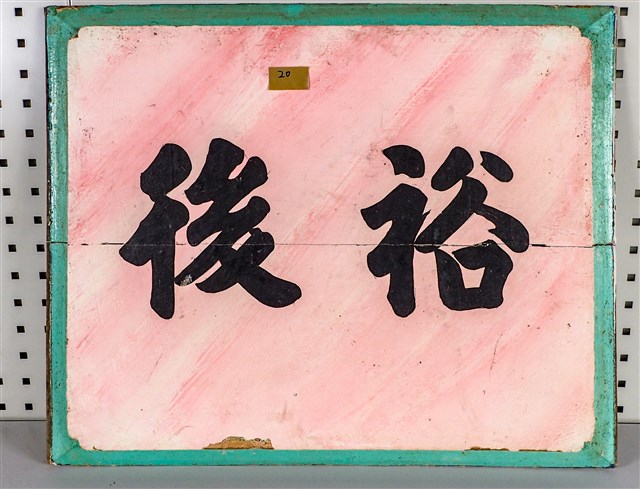 20
裕後